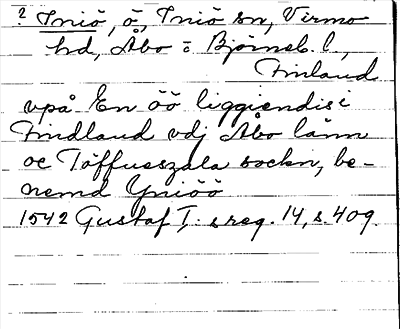 ? Iniö, ö, Iniö sn, Virmo
hd, Åbo o Björneb. l.,
Finland.
vpå En öö liggiendis i
Findland vdj Åbo länn
oc Töffueszala sockn, be-
nemd Yniöö
1542 Gustaf I:s reg. 14, s. 409.